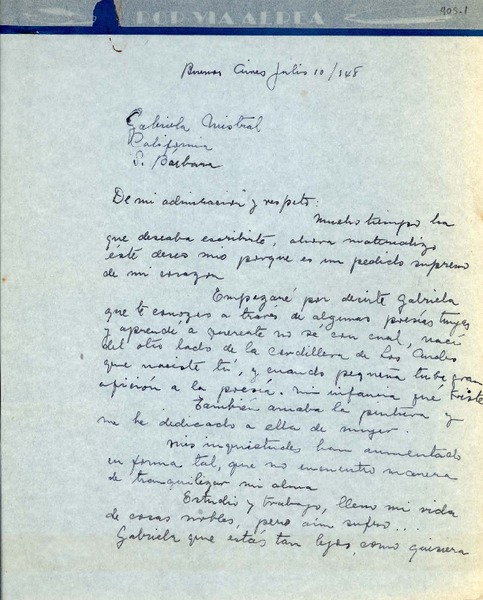 POR VIA AEREA
905-1
Buenos Aires Julio 10/948
Gabriela Mistral
California
S. Bárbara
De mi admiración y respeto:
Mucho tiempo ha
que deseaba escribirte, ahora materializo
éste deseo mio porque es un pedido supremo
de mi corazon
Empezaré por decirte Gabriela
que te conozco a través de algunas poesías tuyas
y aprendí a quererte no sé con cual, nací
del otro lado de la cordillera de Los Andes
que naciste tú, y cuando pequeña tube gran
afición a la poesía. mi infancia qué triste
También amaba la pintura y
me he dedicado a ella de mujer.
Mis inquietudes han aumentado
en forma tal, que no encuentro manera
de tranquilizar mi alma
Estudio y trabajo, lleno mi vida
de cosas nobles, pero aún sufro...
Gabriela que estás tan lejos, como quisiera